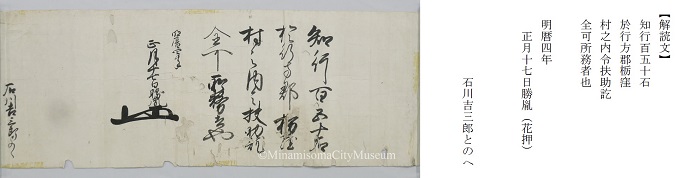 【解読文】
知行百五十石
於行方郡栃窪
村之内令扶助訖
全可所務者也
明暦四年
正月十七日勝胤（花押）
石川吉三郎とのへ
知行百五十石
於行方郡栃窪
村之内令扶助訖
全可所務者也
明暦四年
正月十七日勝胤
石川吉三郎とのへ
©MinamisomaCityMuseum